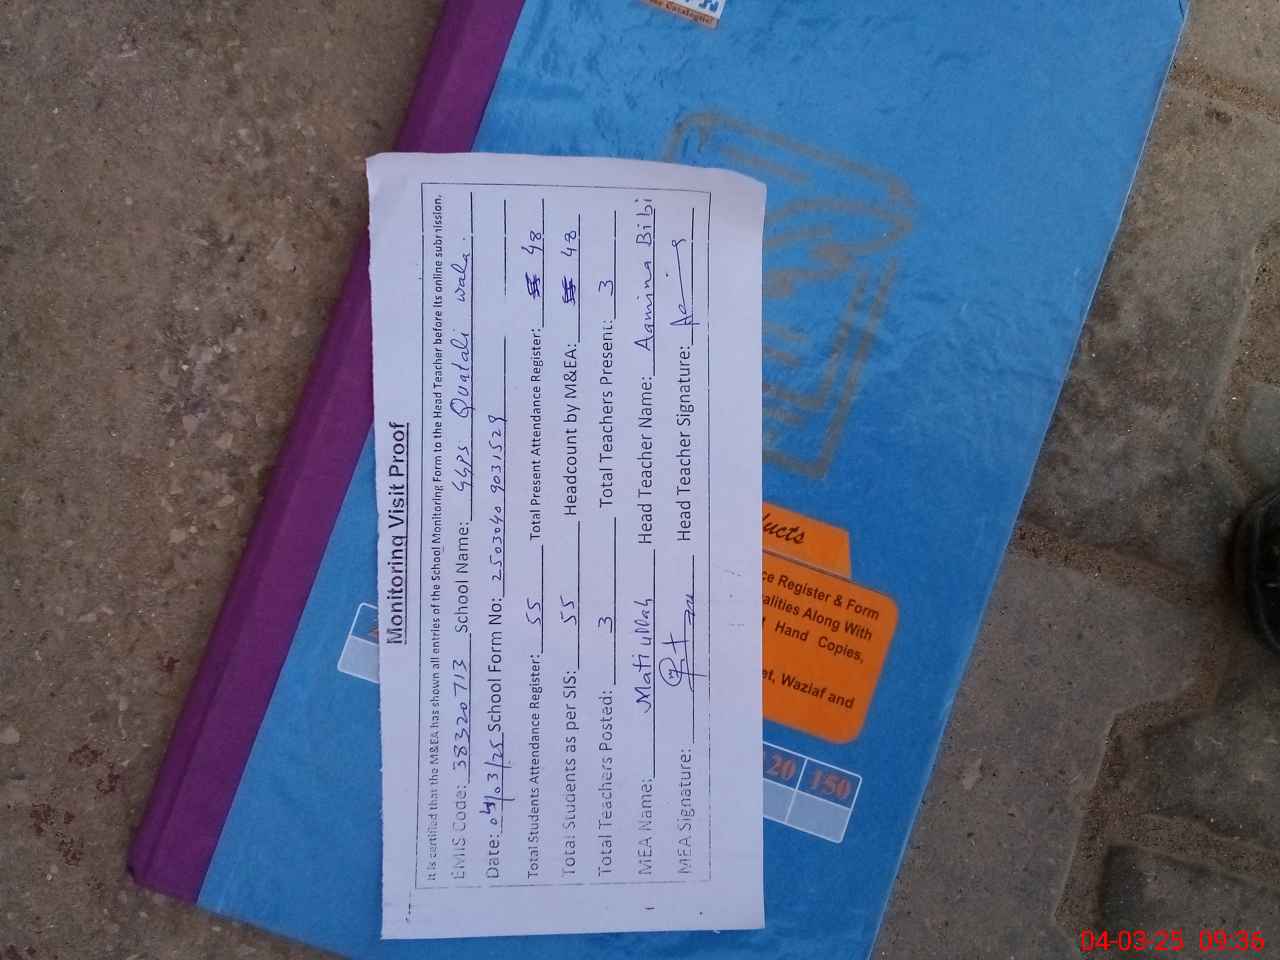 Monitoring Visit Proof
It is certified that the M&EA has shown all entries of the School Monitoring Form to the Head Teacher before its online submission.
EMIS Code: 38320713 School Name: GGPS Quatali wala.
Date: 04/03/25 School Form No: 2503040 9031529
Total Students Attendance Register: 55 Total Present Attendance Register: 48
Total Students as per SIS: 55 Headcount by M&EA: 48
Total Teachers Posted: 3 Total Teachers Present: 3
MEA Name: Matiullah Head Teacher Name: Aamina Bibi
MEA Signature: Head Teacher Signature:
ducts
ce Register & Form
alities Along With
Hand Copies,
et, Waziaf and
20 150
04-03-25 09:36